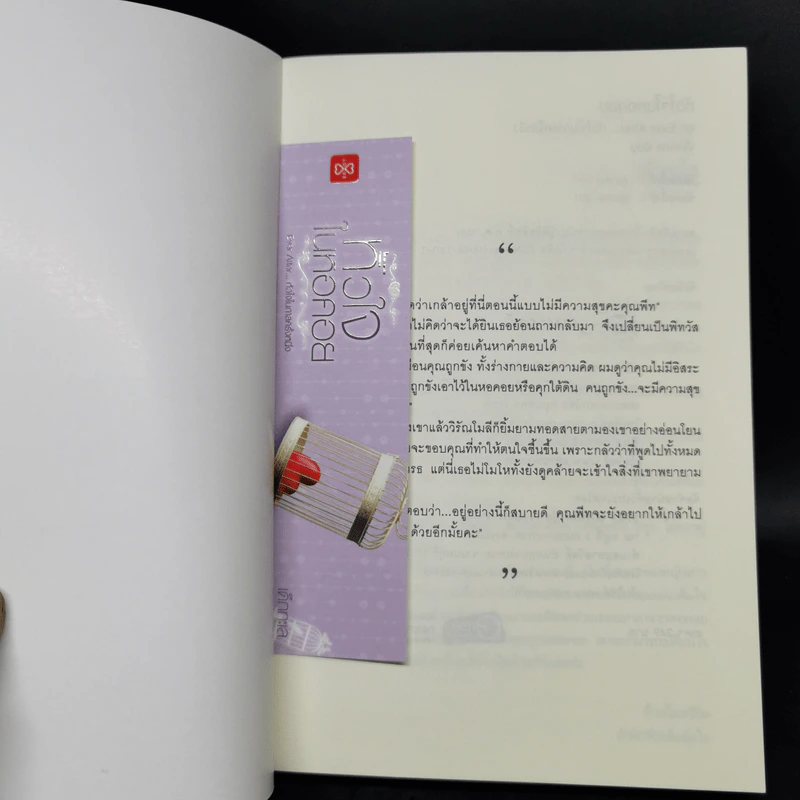 หัวใจ
ในหอคอย
“
ดว่าเกล้าอยู่ที่นี่ตอนนี้แบบไม่มีความสุขคะคุณพีท"
ไม่คิดว่าจะได้ยินเธอย้อนถามกลับมา จึงเปลี่ยนเป็นพิทวัส
นที่สุดก็ค่อยเค้นหาคำตอบได้
ือนคุณถูกขัง ทั้งร่างกายและความคิด ผมดูว่าคุณไม่มีอิสระ
ถูกขังเอาไว้ในหอคอยหรือคุกใต้ดิน คนถูกขัง...จะมีความสุข
"
งเขาแล้ววิรัณโมลีก็ยิ้มยามทอดสายตามองเขาอย่างอ่อนโยน
จะขอบคุณที่ทำให้ตนใจชื้นขึ้น เพราะกลัวว่าที่พูดไปทั้งหมด
รธ แต่นี่เธอไม่โมโหทั้งยังดูคล้ายจะเข้าใจสิ่งที่เขาพยายาม
ตอบว่า...อยู่อย่างนี้ก็สบายดี คุณพีทจะยังอยากให้เกล้าไป
ด้วยอีกมั้ยคะ"
”
เค็กกะเล